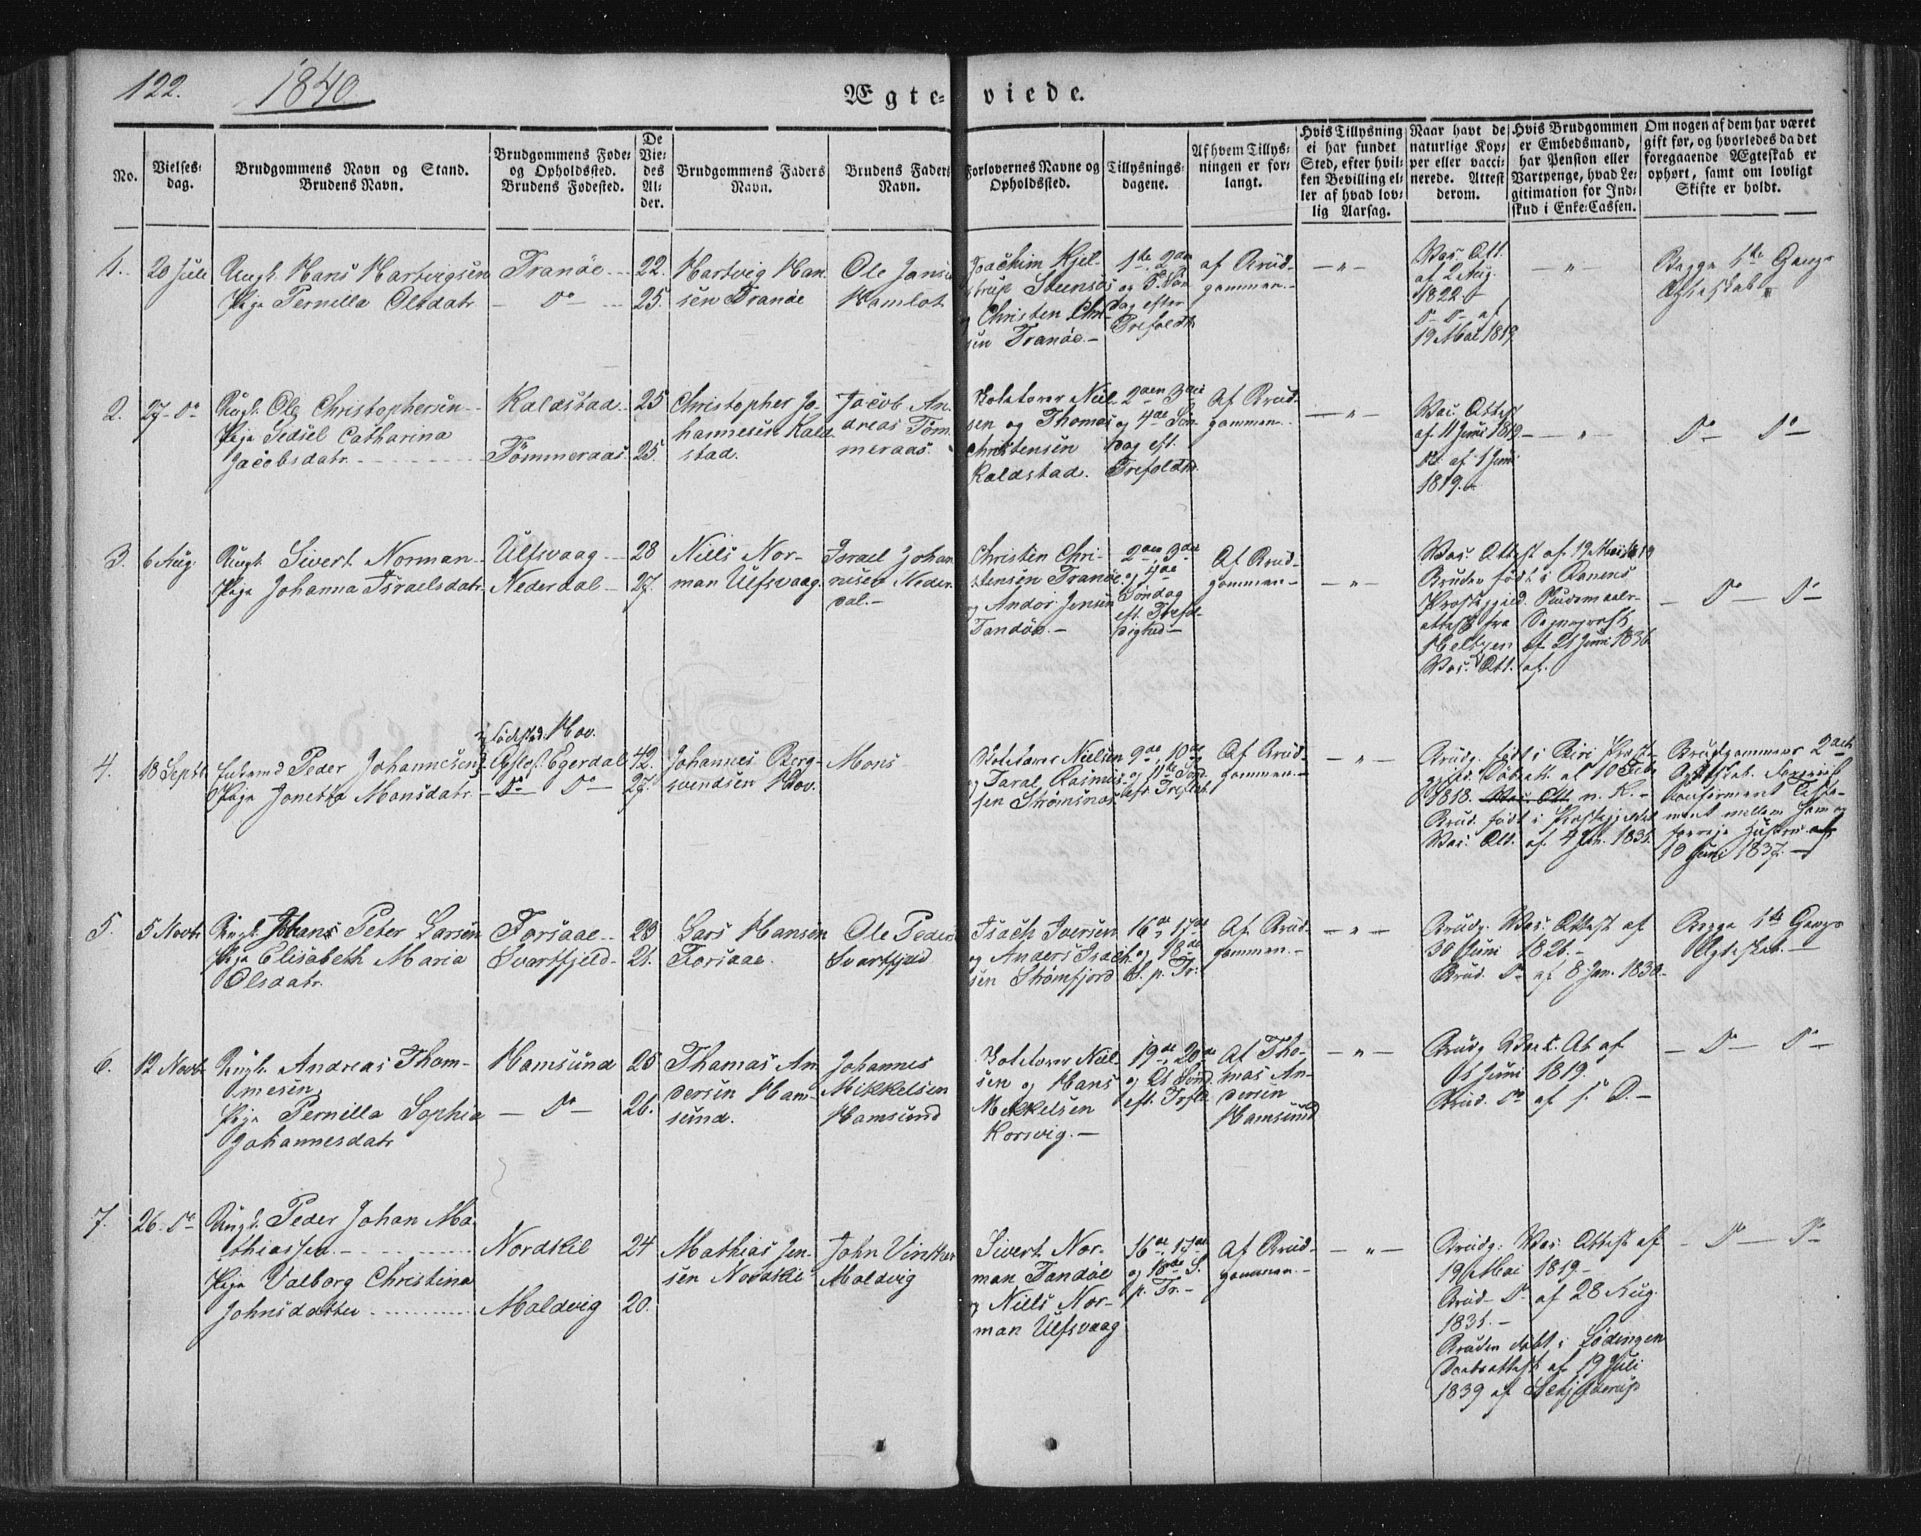 122. 1840.
Ægte-viede.
No.
Vielses-
dag.
Brudgommens Navn og Stand.
Brudens Navn.
Brudgommens Føde-
og Opholdssted.
Brudens Fødested.
De
Vie-
des
Al-
der.
Brudgommens Faders
Navn.
Brudens Faders
Navn.
Forlovernes Navne og
Opholdssted.
Tillysnings-
dagene.
Af hvem Tillys-
ningen er for-
langt.
Hvis Tillysning
ei har fundet
Sted, efter hvil-
ken Bevilling el-
ler af hvad lov-
lig Aarsag.
Naar havt de
naturlige Kop-
per eller vacci-
nerede. Attest
derom.
Hvis Brudgommen
er Embedsmand,
har Pension eller
Vartpenge, hvad Le-
gitimation for Ind-
skud i Enke-Cassen.
Om nogen af dem har været
gift før, og hvorledes da det
foregaaende Ægteskab er
ophørt, samt om lovligt
Skifte er holdt.
1. 20 Juli
Ungk. Hans Hartvigsen
Pige Pernilla Olsdatr
Tranøe
— Do —
22.
25.
Hartvig Han-
sen Tranøe
Ole Jens
Hamlot
Joachim Kjel-
strup Steensøs
og Christen Chri-
sen Tranøe.
1ste 2den
og 3. Søn-
dag efter
Trefoldh.
af Brud-
gommen.
— " —
Vac. Att.
af 2 Aug.
1822.
Do Do af
19 Mai 1819
— " —
Begge 1ste Gangs
Ægteskab.
2. 27 Do
Ungk. Ole Christophersen
Pige Sedsel Catharina
Jacobsdatr
Kaldstad
Tømmeraas
25
25.
Christopher Jo-
hannesen Kald-
stad.
Jacob An-
dreas Tøm-
meraas.
Tolefover Niel-
sen og Thomas
Christensen
Kaldstad.
2den 3die
og 4de Søn-
dag eft.
Trefoldh.
Af Brud-
gommen.
— " —
Vac. Attest
af 11 Juni 1819
Do af 1 Juni
1819.
— " —
Do Do
3. 6 Aug.
Ungk. Sivert Norman
Pige Johanna Israelsdatr
Ulfsvaag
Nederdal
28
27.
Niels Nor-
man Ulfsvaag.
Israel Johan-
nesen Neder-
dal.
Christen Chri-
stensen Tranøe
og Andor Jensen
Tandøe.
2den 3die
og 4de
Søndag
eft. Trefol-
dighed
Af Brud-
gommen
— " —
Vac. Attest af 19 Mai 1819
Bruden født i Ranens
Præstegjeld.
attest fra Sognepræst
Heltzen af 21 Juni 1836
Vac. Att. af.
— Do — Do
4. 18 Septb.
Enkemd Peder Johannesen
Pige Jonetta Monsdatr
Fødested Hov.
Egerdal
— Do — Do —
42.
27.
Johannes Berg-
svendsen Hov.
Mons
Tolefover Nielsen
og Taral Rasmus-
sen Strømsnæs
9de 10de
og 11te Sønd.
eft. Trefold.
Af Brud-
gommen.
— " —
Brudg. født i Biri Præst-
gjeld. Døbeatt. af 10 Feb.
1818. Vac. Att. n. K.
Brud. født i Præstegjeldet
Vac. Att. af 4 Jan. 1835.
Brudgommens 2det
Ægteskab.
Confirmeret Testa-
ment mellem ham og
forrige Hustru af
10 Juni 1837.
5. 5 Novb.
Ungk. Johans Peter Larsen
Pige Elisabeth Maria
Olsdatr.
Forsaae
Svartfjeld
23
21.
Lars Hansen
Forsaae.
Ole Peders
Svartfjeld
Isach Iversen
og Anders Isach-
sen Strømfjord
16de 17de
og 18de
S. p. Tr.
Af Brud-
gommen
— " —
Brudg. Vac. Attest af
30 Juni 1826.
Brud. Do af 8 Jan. 1830.
Begge 1ste Gangs
Ægteskab.
6. 12 Novb.
Ungk. Andreas Thom-
mesen
Pige Pernilla Sophia
Johannesdatr
Hamsund
— Do —
25
26.
Thomas An-
dersen Ham-
sund.
Johannes
Mikkelsen
Hamsund
Tolefover Niel-
sen og Hans
Mekkelsen
Korsvig.
19de 20de
og 21 Sønd.
eft. Trefld.
Af Tho-
mas An-
dersen
Hamsund
— " —
Brudg. Vac. Att. af
1 Juni 1819.
Brud. Do af s. D.
— Do — Do
7. 26 Do
Ungk. Peder Johan Ma-
thiassen
Pige Valborg Christina
Johnsdatter
Nordskil
Maldvig
24
20.
Mathias Jen-
sen Nordskil
John Vinther
Maldvig
Sivert Nor-
man Tandøe
og Niels Nor-
man Ulfsvaag
16de 17de
og 18de S.
p. Tr.
af Brud-
gommen.
— " —
Brudg. Vac. Attest af
19 Mai 1819
Brud. Do af 28 Aug.
1835.
Bruden døbt i Lødingen
Daabsattest af 19 Juli
1839 af Schjelderup
— Do — Do